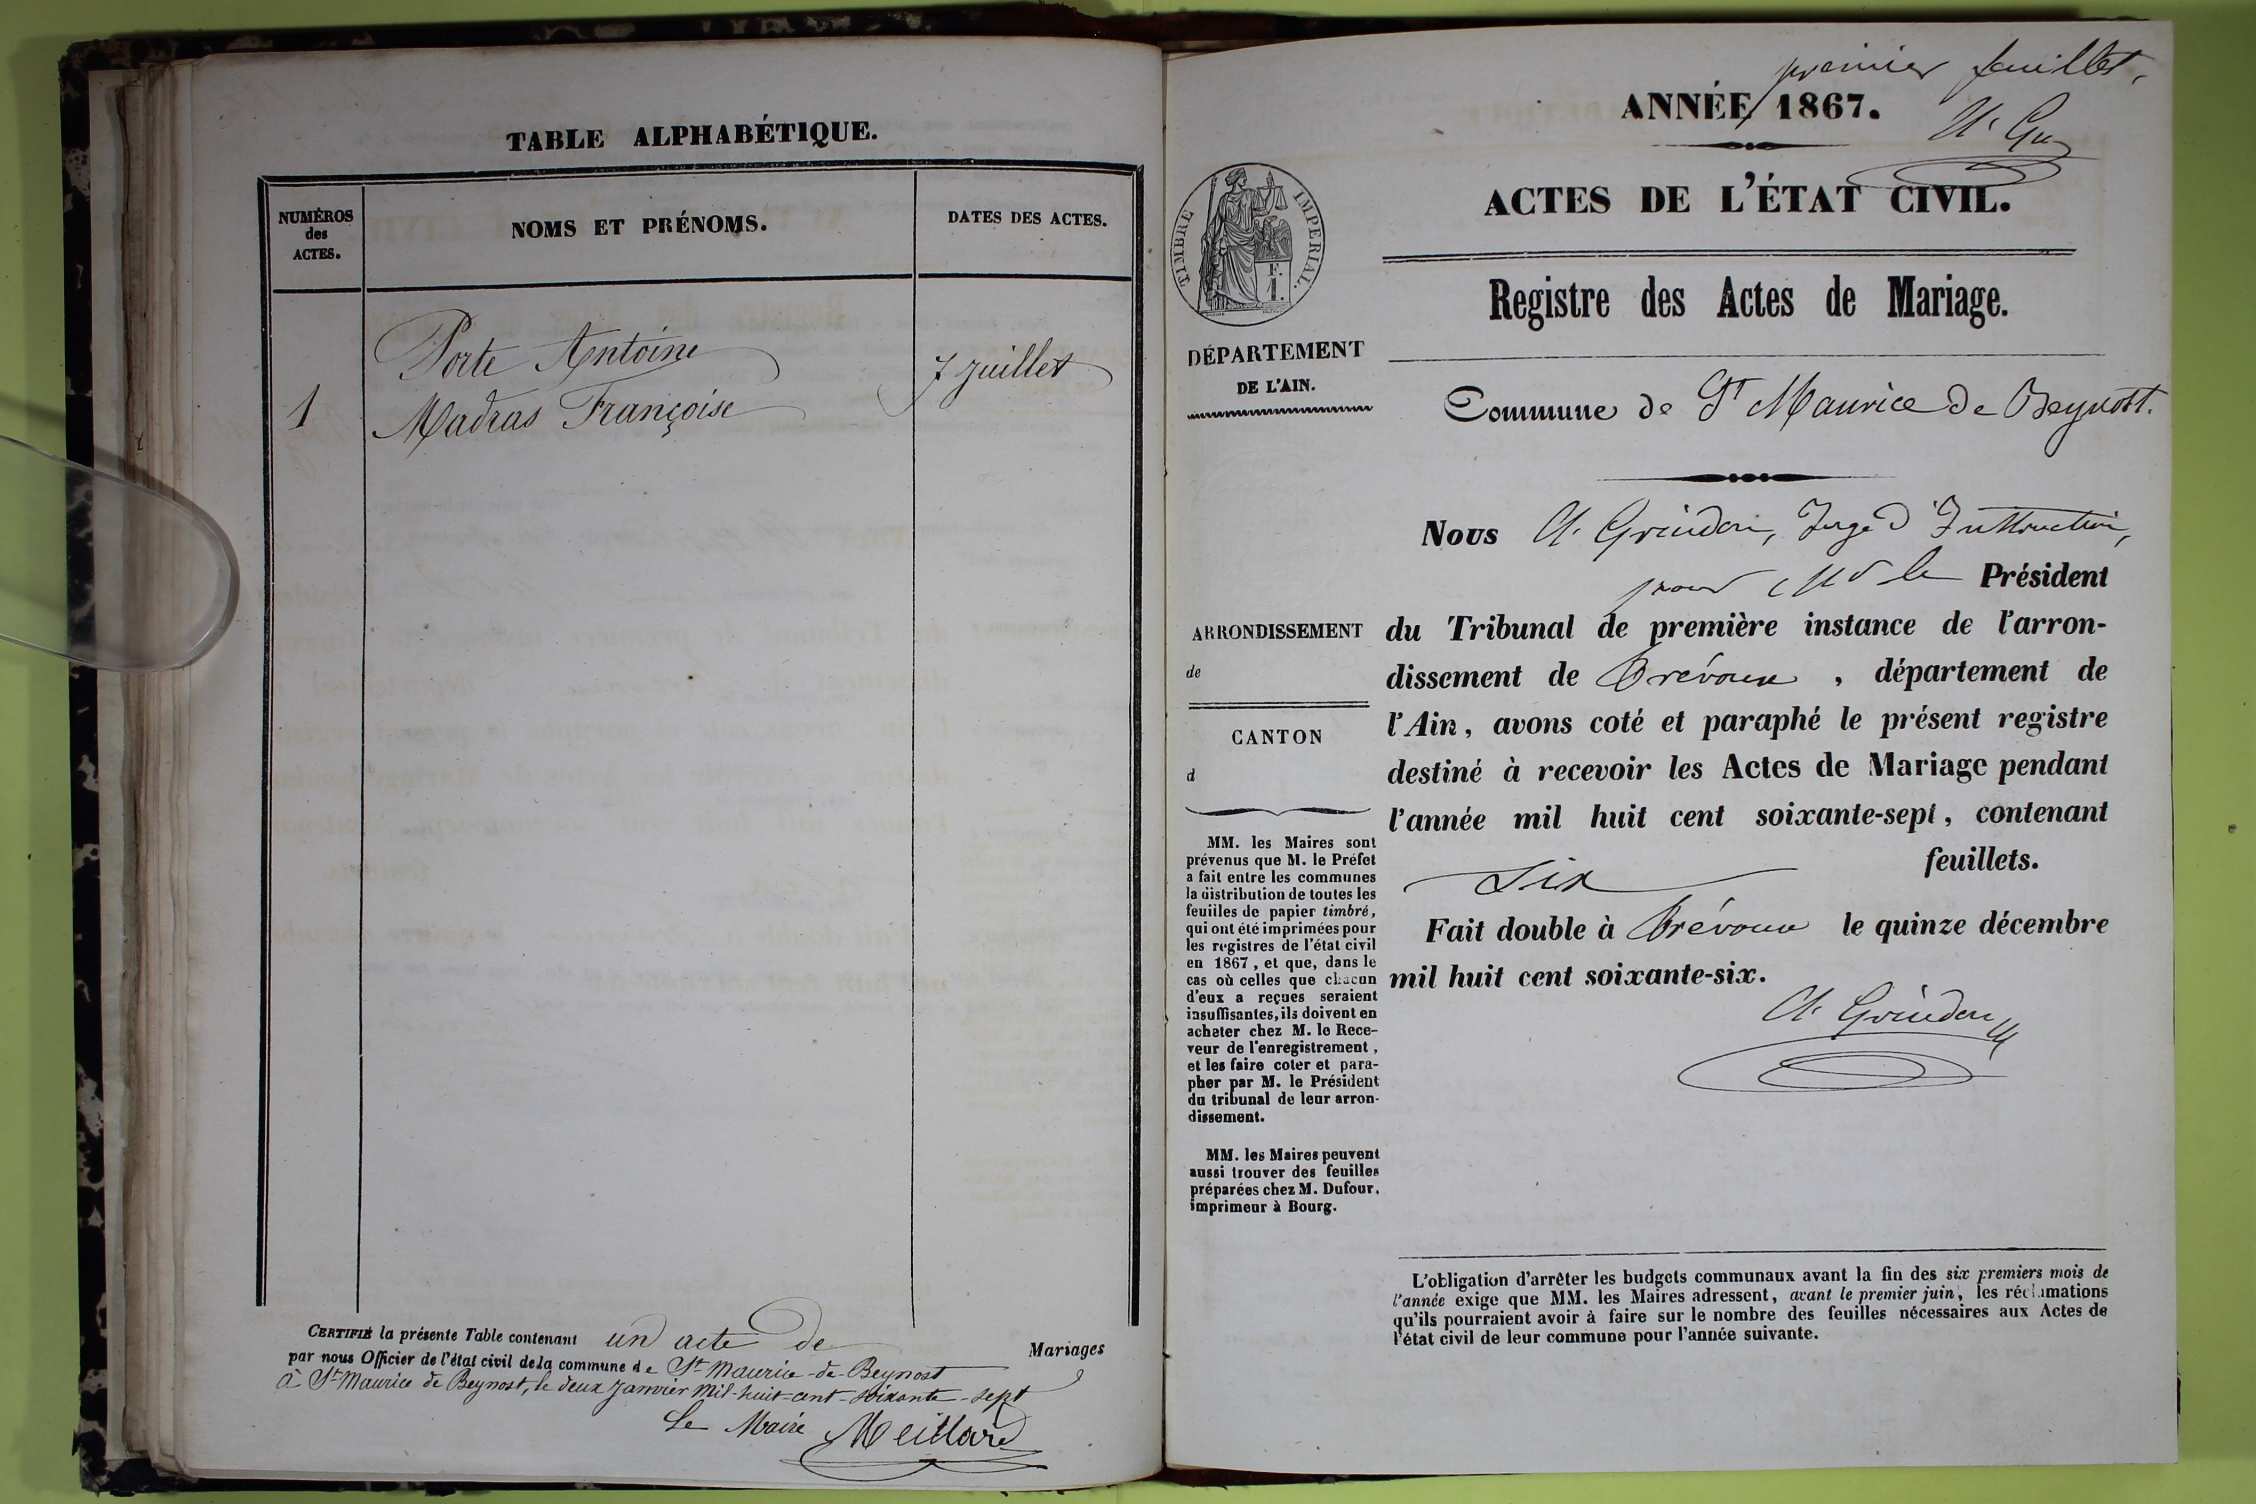 TABLE ALPHABÉTIQUE.
NUMÉROS
des
ACTES.
NOMS ET PRÉNOMS.
DATES DES ACTES.
Porte Antoine
1
Madras Françoise
7 juillet
CERTIFIÉ la présente Table contenant un acte de Mariages
par nous Officier de l'état civil de la commune de St Maurice-de-Beynost
à St Maurice de Beynost, le deux janvier mil-huit-cent-soixante-sept
Le Maire Meillard
premier feuillet,
ANNÉE 1867.
ACTES DE L'ÉTAT CIVIL.
Registre des Actes de Mariage.
TIMBRE IMPERIAL.
F.
1.
DÉPARTEMENT
DE L'AIN.
Commune de St Maurice de Beynost.
Nous Cl. Grindon, Juge d'Instruction,
pour le Président
ARRONDISSEMENT
de
CANTON
d
du Tribunal de première instance de l'arron-
dissement de Trévoux, département de
l'Ain, avons coté et paraphé le présent registre
destiné à recevoir les Actes de Mariage pendant
l'année mil huit cent soixante-sept, contenant
six feuillets.
Fait double à Trévoux le quinze décembre
mil huit cent soixante-six.
Cl. Grindon
MM. les Maires sont
prévenus que M. le Préfet
a fait entre les communes
la distribution de toutes les
feuilles de papier timbré,
qui ont été imprimées pour
les registres de l'état civil
en 1867, et que, dans le
cas où celles que chacun
d'eux a reçues seraient
insuffisantes, ils doivent en
acheter chez M. le Rece-
veur de l'enregistrement,
et les faire coter et para-
pher par M. le Président
du tribunal de leur arron-
dissement.
MM. les Maires peuvent
aussi trouver des feuilles
préparées chez M. Dufour,
imprimeur à Bourg.
L'obligation d'arrêter les budgets communaux avant la fin des six premiers mois de
l'année exige que MM. les Maires adressent, avant le premier juin, les réclamations
qu'ils pourraient avoir à faire sur le nombre des feuilles nécessaires aux Actes de
l'état civil de leur commune pour l'année suivante.